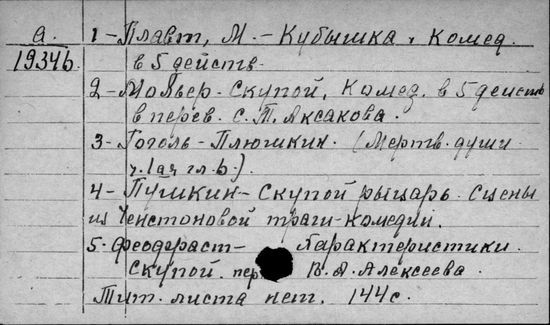 а. 1- Плавт, М. - Кубышка. Комед.
1934б в 5 действ.
2- Мольер - Скупой. Комед. в 5 действ
в перев. С. Т. Аксакова.
3- Гоголь - Плюшкин. (Мертв. души
ч. 1ая гл. 6.)
4- Пушкин - Скупой рыцарь. Сцены
из Ченстоновой траги-комедии.
5- Феодераст - Характеристики.
Скупой. пер В. А. Алексеева.
Тит. листа нет. 144с.